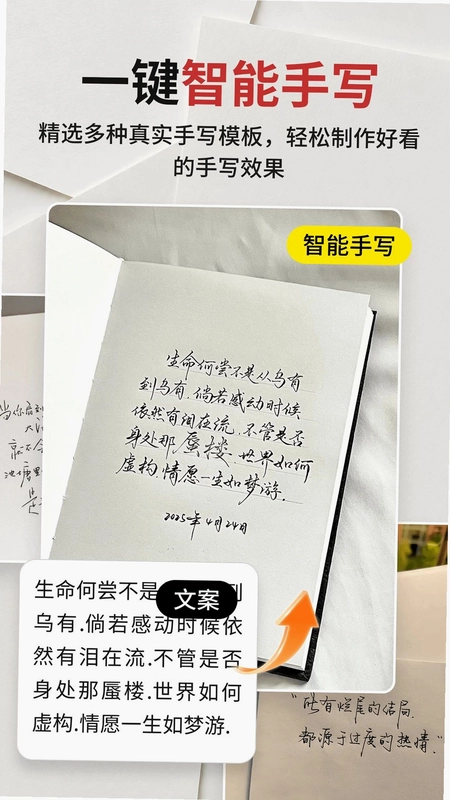 一键智能手写
精选多种真实手写模板，轻松制作好看
的手写效果
智能手写
生命何尝不是从乌有
到乌有.倘若感动时候
依然有泪在流.不管是否
身处那蜃楼.世界如何
虚构.情愿一生如梦游.
2025年4月24日
当你
生命何尝不是
到
文案
乌有.倘若感动时候依
然有泪在流.不管是否
身处那蜃楼.世界如何
虚构.情愿一生如梦游.
"所有烂尾的结局.
都源于过度的热情."